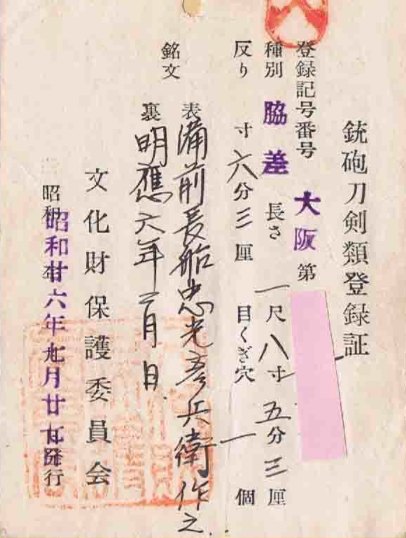 銃砲刀剣類登録証
登録記号番号 大阪 第
種別 脇差 長さ 一尺八寸五分三厘
反り 寸六分三厘 目くぎ穴 一個
銘文 表 備前長船忠光彦兵衛作之
裏 明應六年二月日
文化財保護委員会
昭和廿六年九月廿五日発行